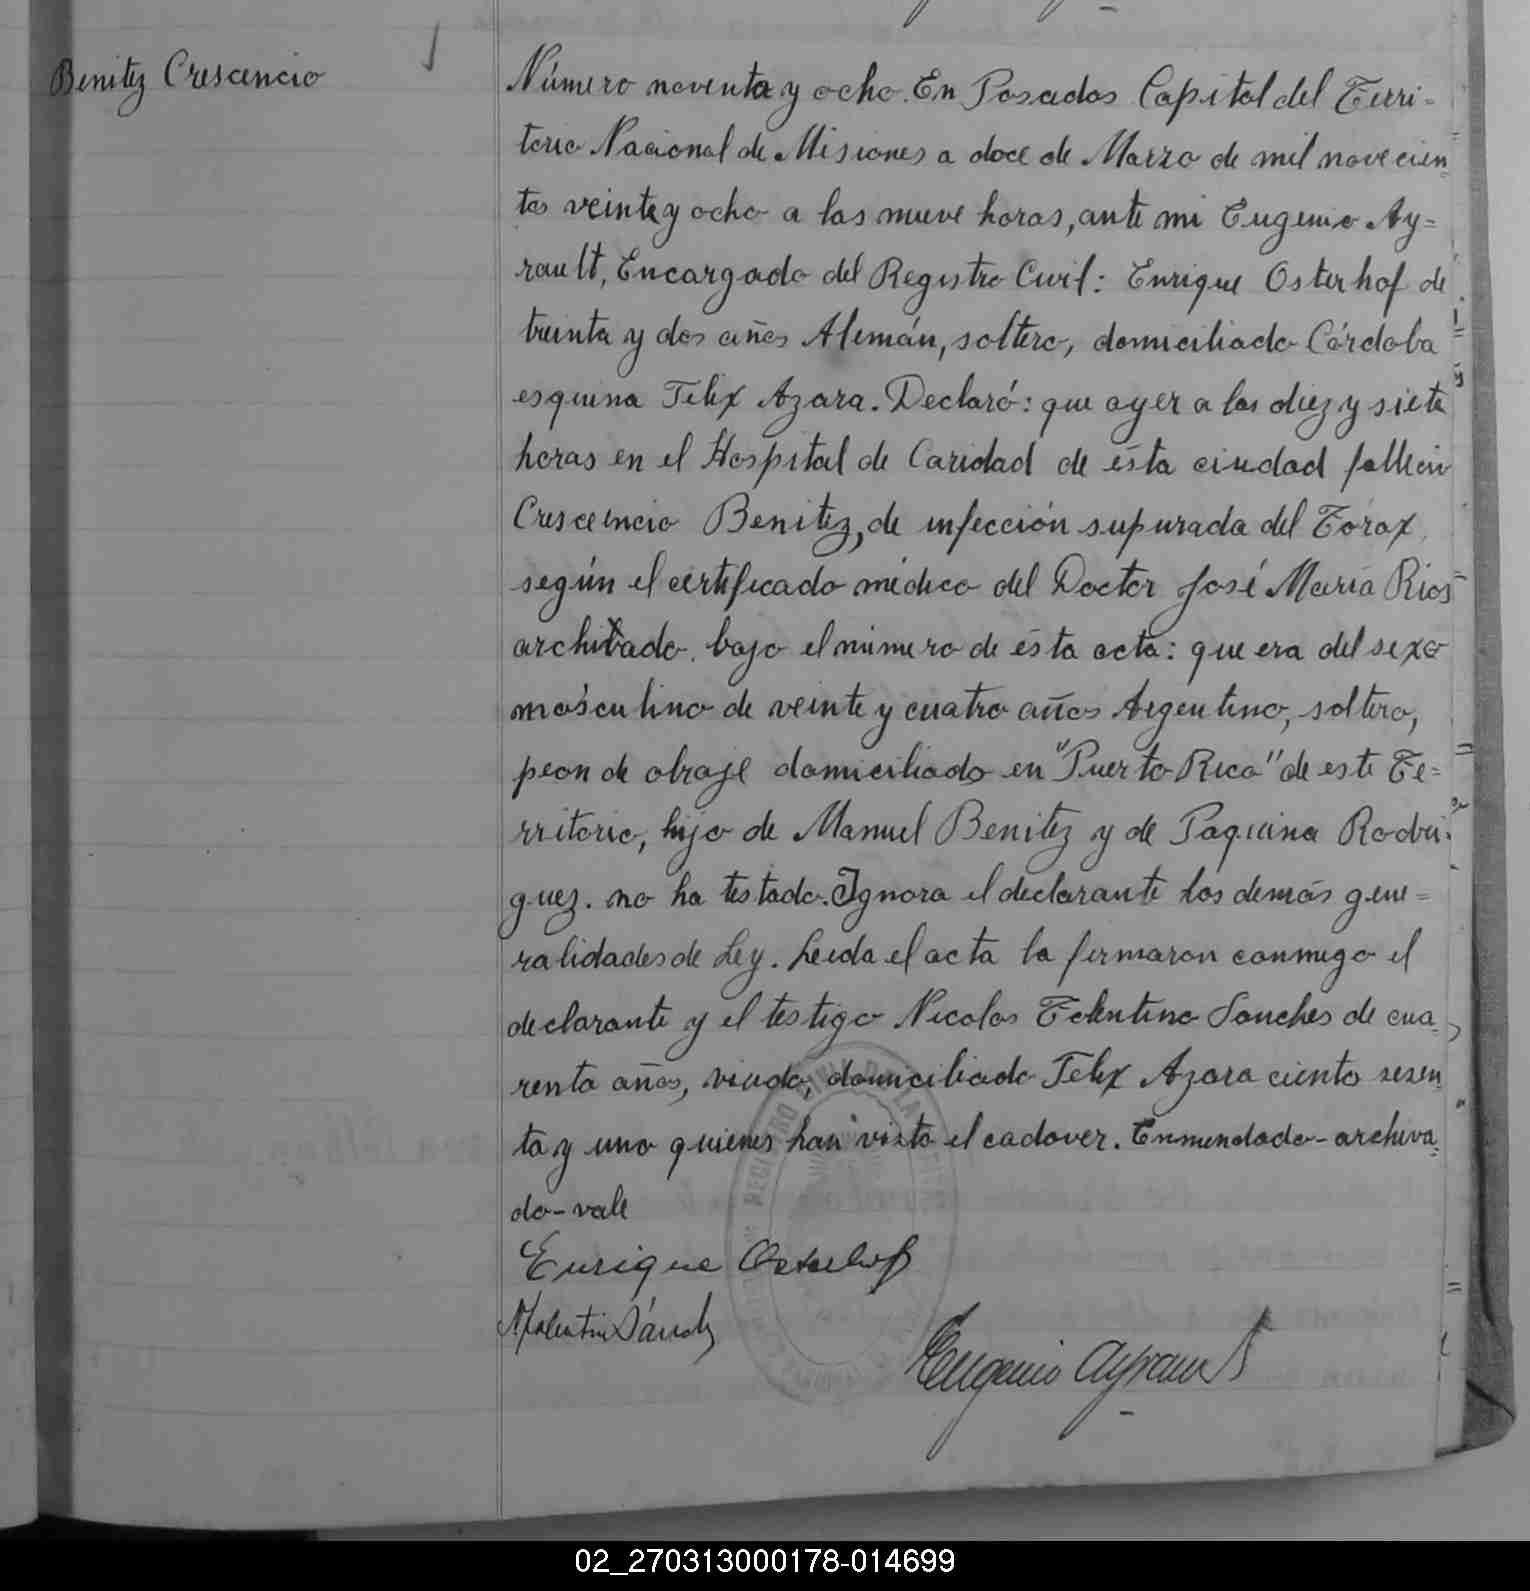 Benitez Crescencio
Número noventa y ocho. En Posadas Capital del Terri-
torio Nacional de Misiones a doce de Marzo de mil novecien
tos veinte y ocho a las nueve horas, ante mi Eugenio Ay=
rault, Encargado del Registro Civil: Enrique Osterhof de
treinta y dos años Alemán, soltero, domiciliado Córdoba
esquina Felix Azara. Declaró: que ayer a las diez y siete
horas en el Hospital de Caridad de ésta ciudad falleció
Crescencio Benitez, de infección supurada del Tórax,
según el certificado médico del Doctor José María Rios
archivado bajo el número de ésta acta: que era del sexo
másculino de veinte y cuatro años Argentino, soltero,
peon de obraje domiciliado en "Puerto Rico" de este Te=
rritorio, hijo de Manuel Benitez y de Paquina Rodri-
guez. no ha testado. Ignora el declarante las demás gene=
ralidades de Ley. Leida el acta la firmaron conmigo el
declarante y el testigo Nicolas Tolentino Sanches de cua
renta años, viudo, domiciliado Felix Azara ciento sesen
ta y uno quienes han visto el cadaver. Enmendado-archiva
do-vale
Enrique Osterhof
Eugenio Ayrault
REGISTRO CIVIL DE LA
02_270313000178-014699